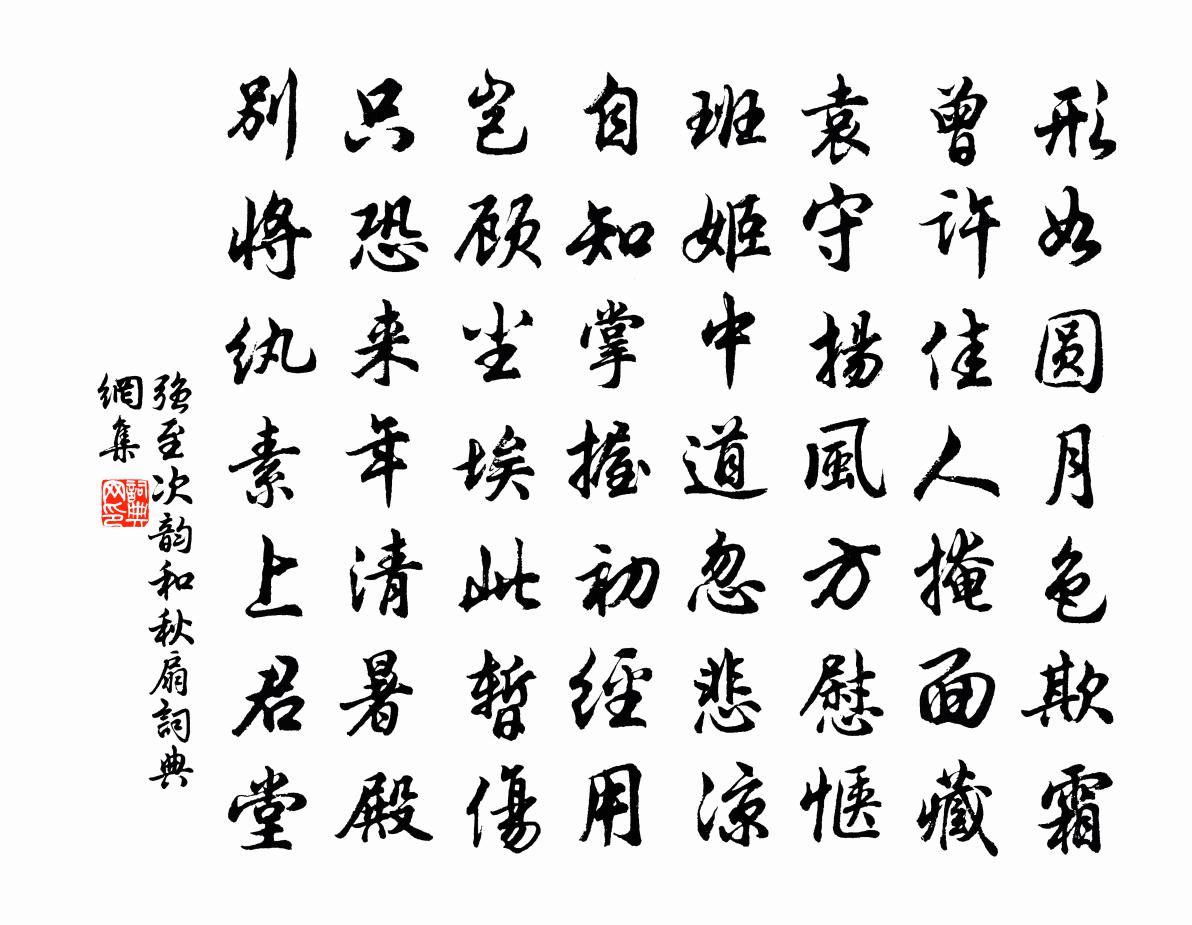 形如圆月色欺霜
曾许佳人掩面藏
袁守揚風方慰惬
班姬中道忽悲凉
自知掌握初經用
岂顾尘埃此暫傷
只恐来年清暑殿
别将纨素上君堂
强至次韵和秋扇詞典
網集
詞典网印